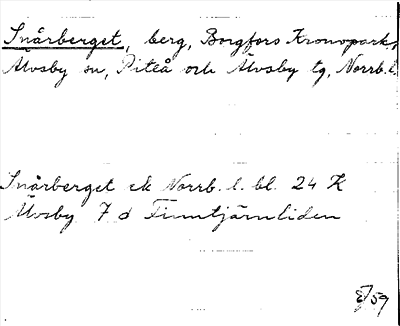 Snårberget, berg, Borgfors Kronopark,
Älvsby sn, Piteå och Älvsby tg, Norrb. l.
Snårberget ek Norrb. l. bl. 24 K
Älvsby 7 d Finntjärnliden
59